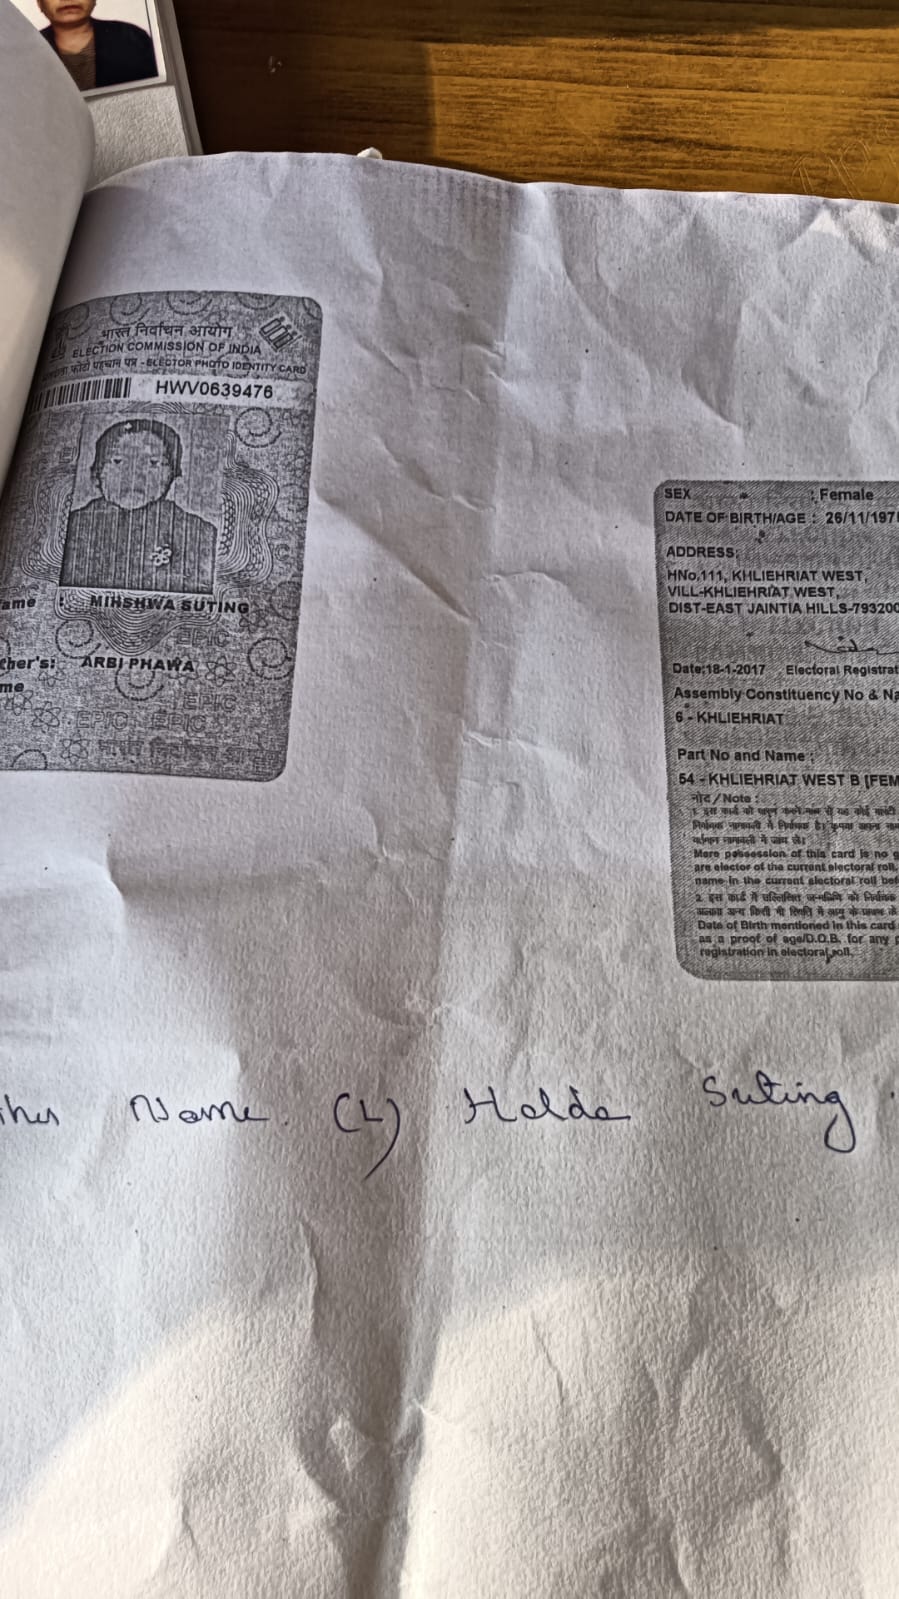 भारत निर्वाचन आयोग
ELECTION COMMISSION OF INDIA
फोटो पहचान पत्र - ELECTOR PHOTO IDENTITY CARD
HWV0639476
ame : MIHSHWA SUTING
ther's: ARBI PHAWA
me
EPIC
EPIC
EPIC EPIC
SEX : Female
DATE OF BIRTH/AGE : 26/11/197
ADDRESS:
HNo.111, KHLIEHRIAT WEST,
VILL-KHLIEHRIAT WEST,
DIST-EAST JAINTIA HILLS-793200
Date:18-1-2017 Electoral Registrat
Assembly Constituency No & Na
6 - KHLIEHRIAT
Part No and Name :
54 - KHLIEHRIAT WEST B [FEM
नोट / Note :
Mere possession of this card is no g
are elector of the current electoral roll.
name in the current electoral roll bef
Date of Birth mentioned in this card
as a proof of age/D.O.B. for any p
registration in electoral roll.
ther Name. (L) Holda Suting.